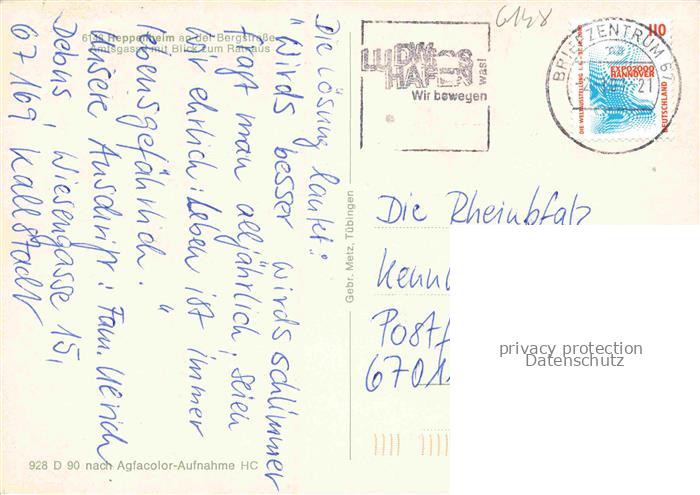 6148 Heppenheim an der Bergstraße
Amtsgasse mit Blick zum Rathaus
Die Lösung lautet:
"Wirds besser wirds schlimmer
fragt man alljährlich, seien
wir ehrlich: Leben ist immer
lebensgefährlich."
Unsere Anschrift: Fam. Ulrich
Debus, Wiesengasse 15,
67169 Kallstadt
928 D 90 nach Agfacolor-Aufnahme HC
Gebr. Metz, Tübingen
6148
LUDWIGS
HAFEN
was!
Wir bewegen
BRIEFZENTRUM 67
21
110
EXPO2000
HANNOVER
DEUTSCHLAND
Die Rheinpfalz
Kenn
Postf
6701
privacy protection
Datenschutz